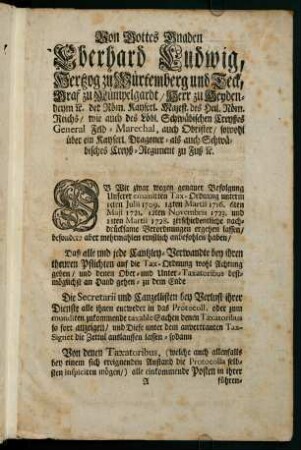 Von Gottes Gnaden
Eberhard Ludwig,
Hertzog zu Würtemberg und Teck,
Graf zu Mömpelgardt / Herr zu Heyden-
heym ꝛc. der Röm. Kayserl. Majest. des Heil. Röm.
Reichs / wie auch des Löbl. Schwäbischen Creyses
General Feld-Marechal, auch Obrister / sowohl
über ein Kayserl. Dragoner- als auch Schwä-
bisches Creyß-Regiment zu Fuß ꝛc.
OB Wir zwar wegen genauer Befolgung
Unserer emanirten Tax-Ordnung unterm
Julii 1709. 14ten Martii 1716. 6ten
Maji 1721. 12ten Novembris 1723. und
2ten Martii 1728. zerschiedentliche nach-
drucksame Verordnungen ergehen lassen /
besonders aber mehrmahlen ernstlich anbefohlen haben /
Daß alle und jede Cantzley-Verwandte bey ihren
theuren Pflichten auf die Tax-Ordnung wohl Achtung
geben / und denen Ober- und Unter-Taxatoribus best-
möglichst an Hand gehen - zu dem Ende
Die Secretarii und Cancellisten bey Verlust ihrer
Dienste alle ihnen entweder in das Protocoll, oder zum
mundiren zukommende taxable Sachen denen Taxatoribus
so fort anzeigen / und diese unter dem anvertrauten Tax-
Signet die Zettul auslauffen lassen - sodann
Von denen Taxatoribus, (welche auch allenfalls
bey einem sich ereignenden Anstand die Protocolla selb-
sten inspiciren mögen /) alle einkommende Posten in ihrer
A führen-